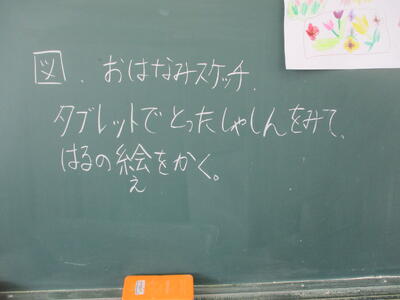 図.おはなみスケッチ.
タブレットでとったしゃしんをみて、
はるの絵をかく。
え